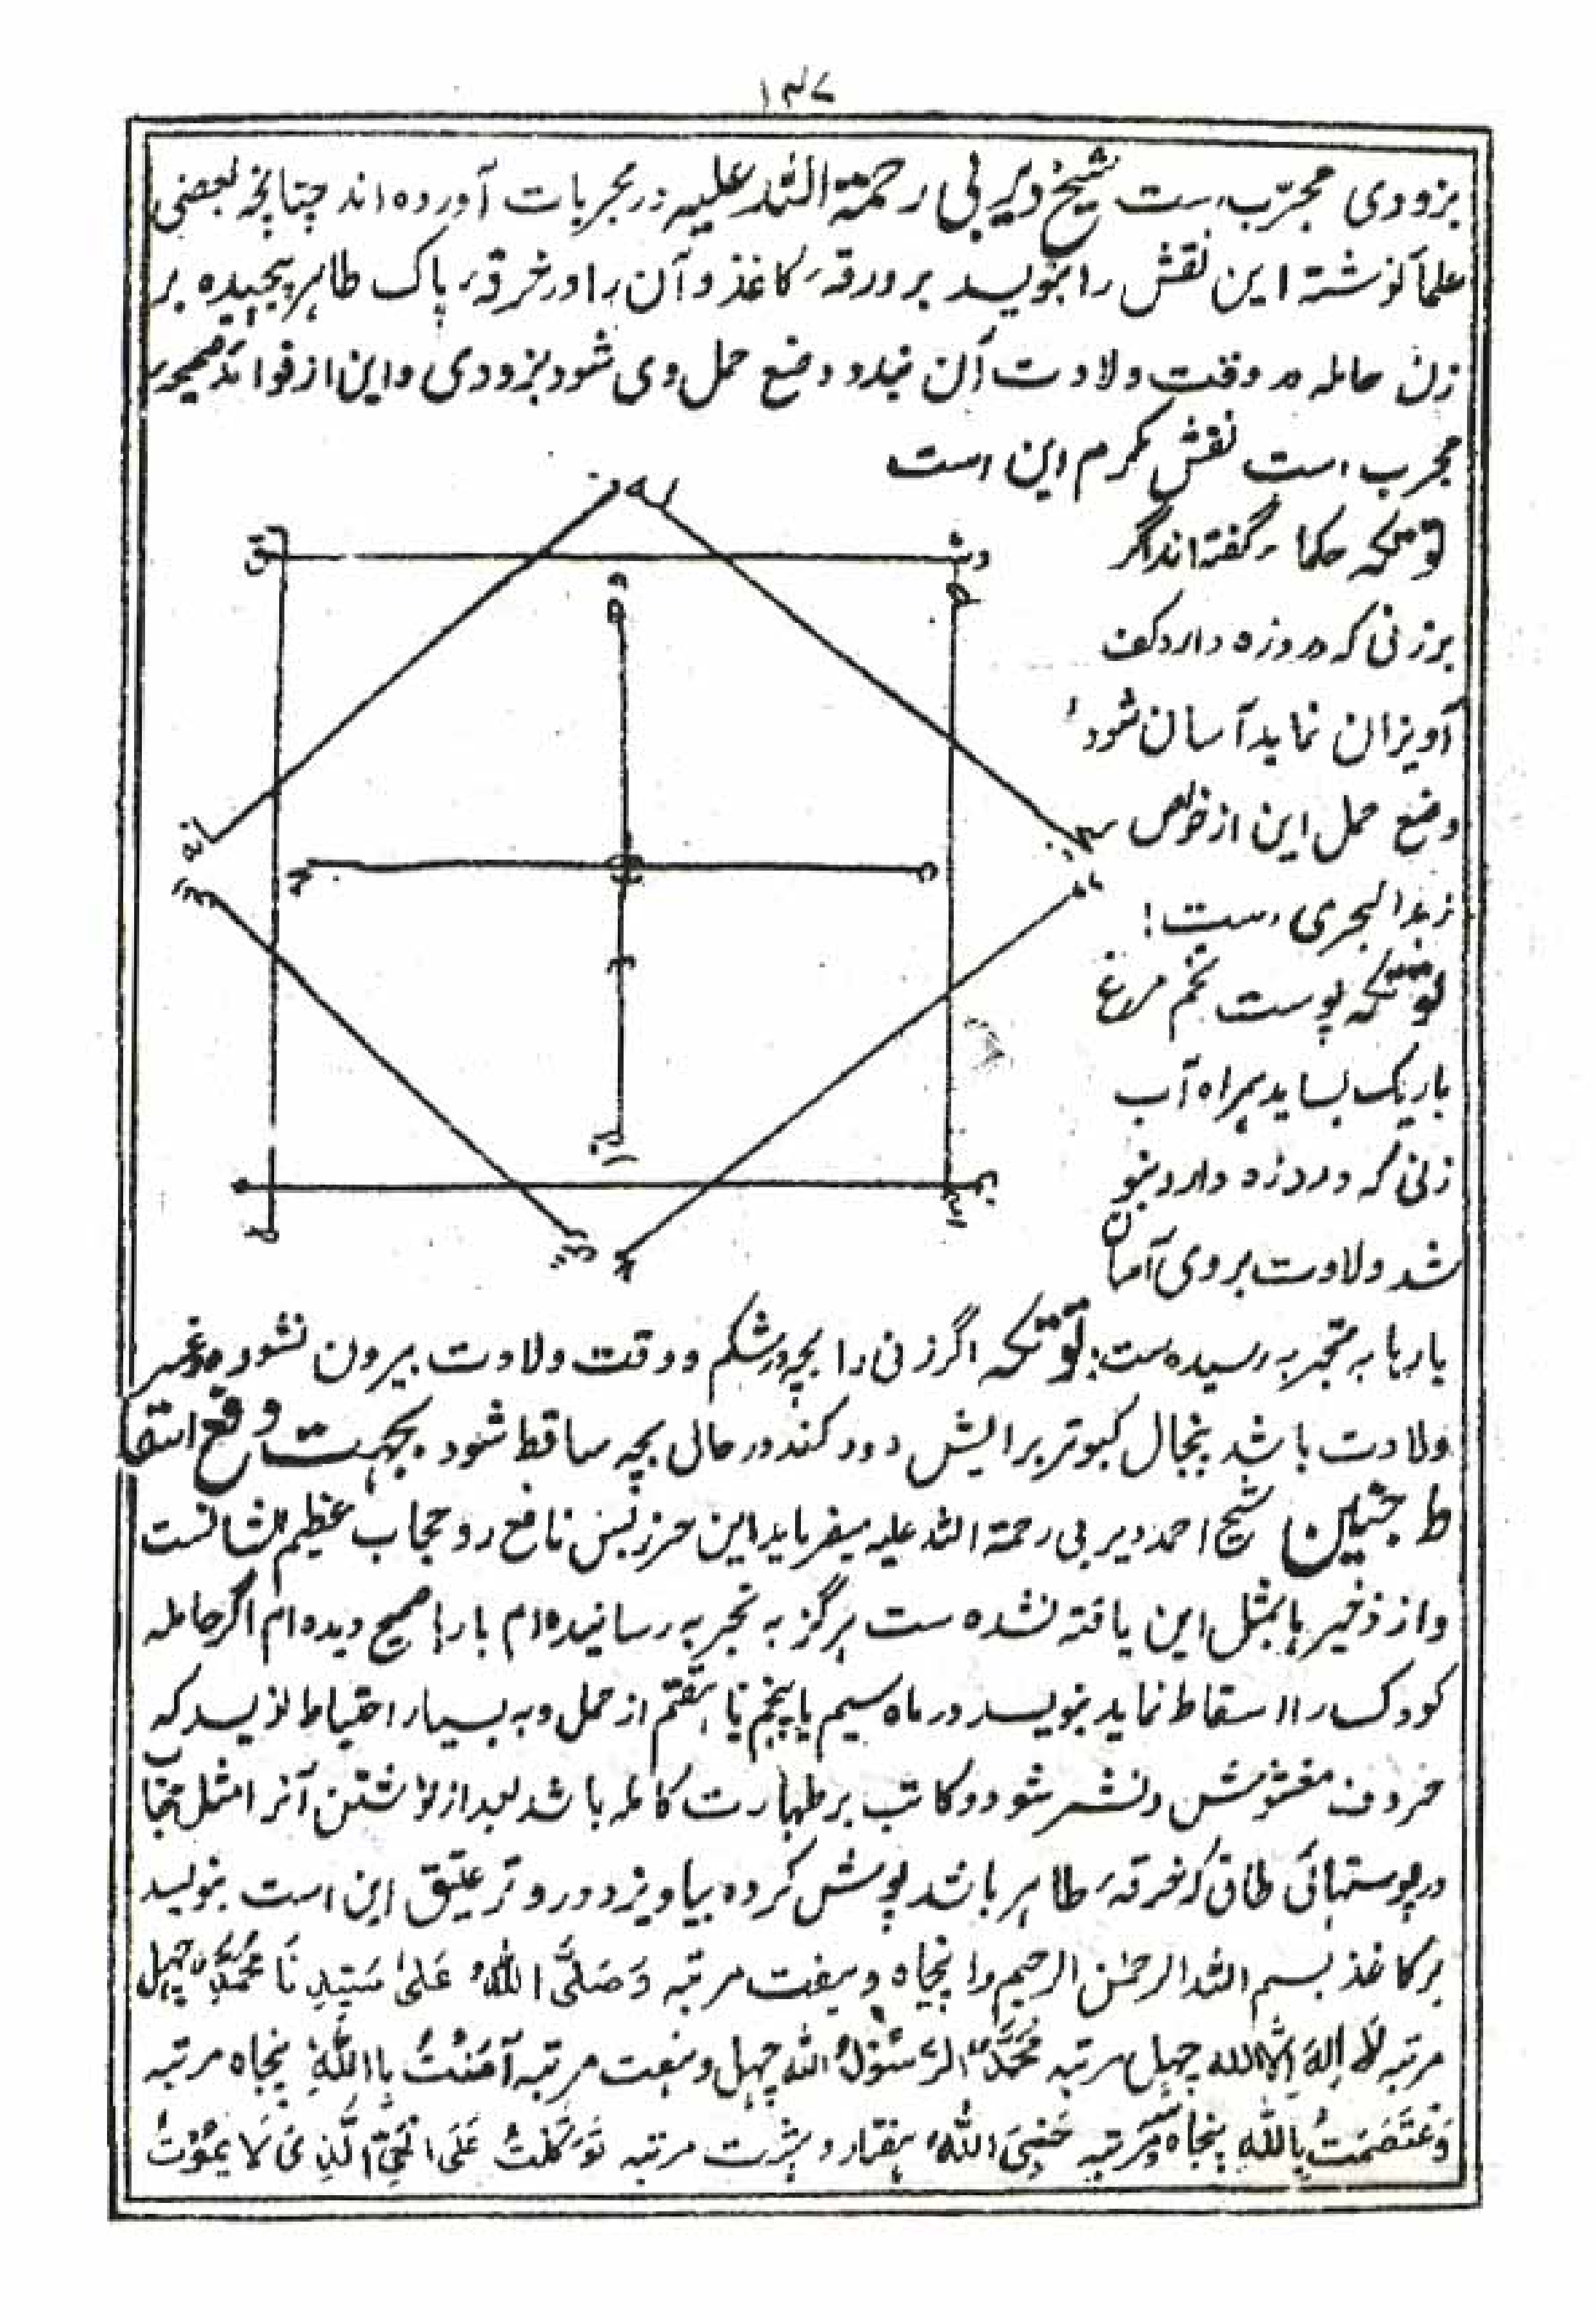 ۱۳۷
بزودی مجرّب است شیخ دیربی رحمة الله علیه در مجربات آورده اند چنانچه بعضی
علمآ نوشته این نقش را بنویسد بر ورقهٔ کاغذ و آن را در خرقهٔ پاک طاهر پیچیده بر
زن حامله در وقت ولادت آن بندد وضع حمل وی شود بزودی و این از فوائد صحیحه
مجرب است نقش مکرم این است
نوتکه حکماء گفته اند اگر
بر زنی که دروزه دارد کف
آویزان نماید آسان شود
وضع حمل این از خواص
زبد البحری است
نوتکه پوست تخم مرغ
باریک بساید همراه آب
زنی که درد زه دارد بنو
شد ولادت بروی آسان
بارها به تجربه رسیده است نوتکه اگر زنی را بچه در شکم و وقت ولادت بیرون نشود و
ولادت باشد پنجال کبوتر برایش دود کند در حالی بچه ساقط شود بجهت دفع اسقا
ط جنین شیخ احمد دیربی رحمة الله علیه میفرماید این حرز بس نافع و حجاب عظیم الشانست
و از ذخیرها بمثل این یافته نشده ست هرگز به تجربه رسانیده ام بارها صحیح دیده ام اگر حامله
کودک را اسقاط نماید بنویسد در ماه سیم یا پنجم یا هفتم از حمل و به بسیار احتیاط نویسد که
حروف مغشوش نشود و کاتب بر طهارت کامله باشد بعد از نوشتن آنرا مثل
در پوستهائی طاق که خرقهٔ طاهر باشد پوش کرده بیاویزد این است بنویسد
بر کاغذ بسم الله الرحمٰن الرحیم را پنجاه و هفت مرتبه وَصَلَّی اللّٰهُ عَلیٰ سَیِّدِنَا مُحَمَّدٍ چهل
مرتبه لَا اِلٰهَ اِلَّا الله چهل مرتبه مُحَمَّدٌ الرَّسُوْلُ الله چهل و هفت مرتبه آمَنْتُ بِااللّٰهِ پنجاه مرتبه
وَعْتَصَمَتُ بِاللّٰهِ پنجاه مرتبه حَسْبِیَ اللّٰهُ هفتاد و هشت مرتبه تَوَکَّلْتُ عَلَی الْحَیِّ الَّذِی لَا یَمُوْتُ